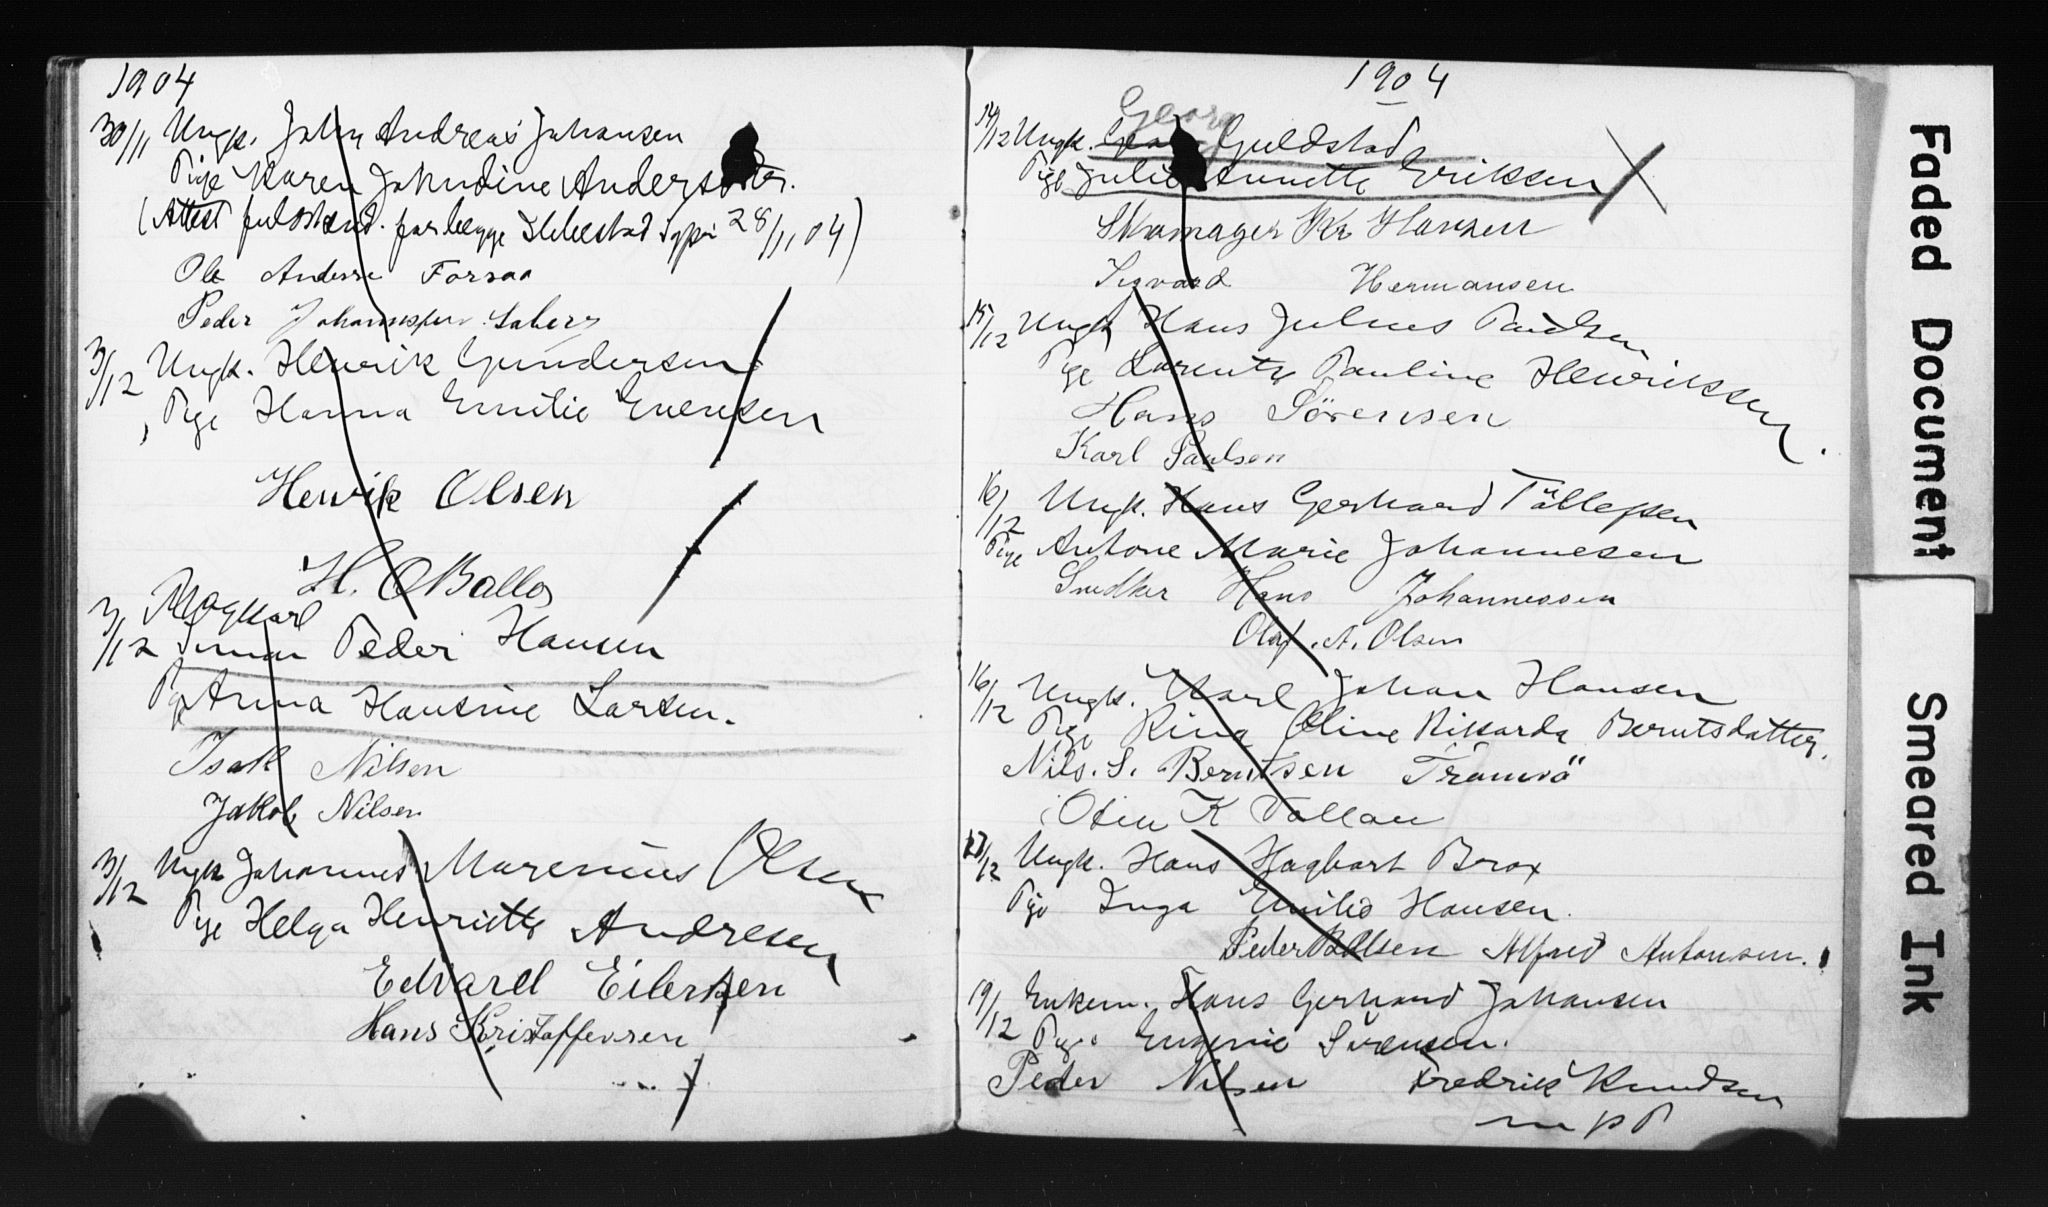 1904
30/11 Ungk. John Andreas Johansen
Pige Karen Jakobine Andersdtr.
(Attest for begge 28/11 04)
Ole Anders Forsaa
Peder Johannesen
3/12 Ungk. Henrik Gundersen
Pige Hanna Emilie Evensen
Henrik Olsen
H. O Balle
3/12 Ungkarl
Peder Hansen
Pige Anna Hansine Larsen.
Isak Nilsen
Jakob Nilsen
3/12 Ungk Johannes Marenius Olsen
Pige Helga Henriette Andresen
Edvard Eilersen
Hans Kristoffersen
1904
Georg
14/12 Ungk. Guldstad
Pige Julie Annette Eriksen
Skomager Kr Hansen
Sigvard Hermansen
15/12 Ungk Hans Julius Paulsen
Pige Lorentze Pauline Henriksen.
Hans Sörensen
Karl Paulsen
16/12 Ungk. Hans Gerhard Tollefsen
Pige Antone Marie Johannesen
Snedker Hans Johannessen
Olaf. A. Olsen
16/12 Ungk. Karl Johan Hansen
Pige Rina Oline Rikarda Berntsdatter.
Nils. S. Berntsen Tromsö
K
17/12 Ungk. Hans Hagbart Brox
Pige Inga Emilie Hansen.
Peder Olsen Alfred Antonsen.
19/12 Enkem. Hans Gerhard Johansen
Pige Eugenie Sörensen.
Peder Nilsen Fredrik Knudsen
m p P
Faded Document
Smeared Ink